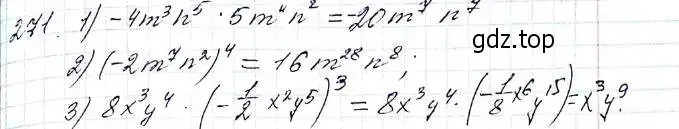 271. 1) -4m³n⁵ · 5m⁴n² = -20m⁷n⁷
gdz.top
2) (-2m⁷n²)⁴ = 16m²⁸n⁸;
3) 8x³y⁴ · (-1/2 x²y⁵)³ = 8x³y⁴ · (-1/8 x⁶y¹⁵) = x³y⁹.